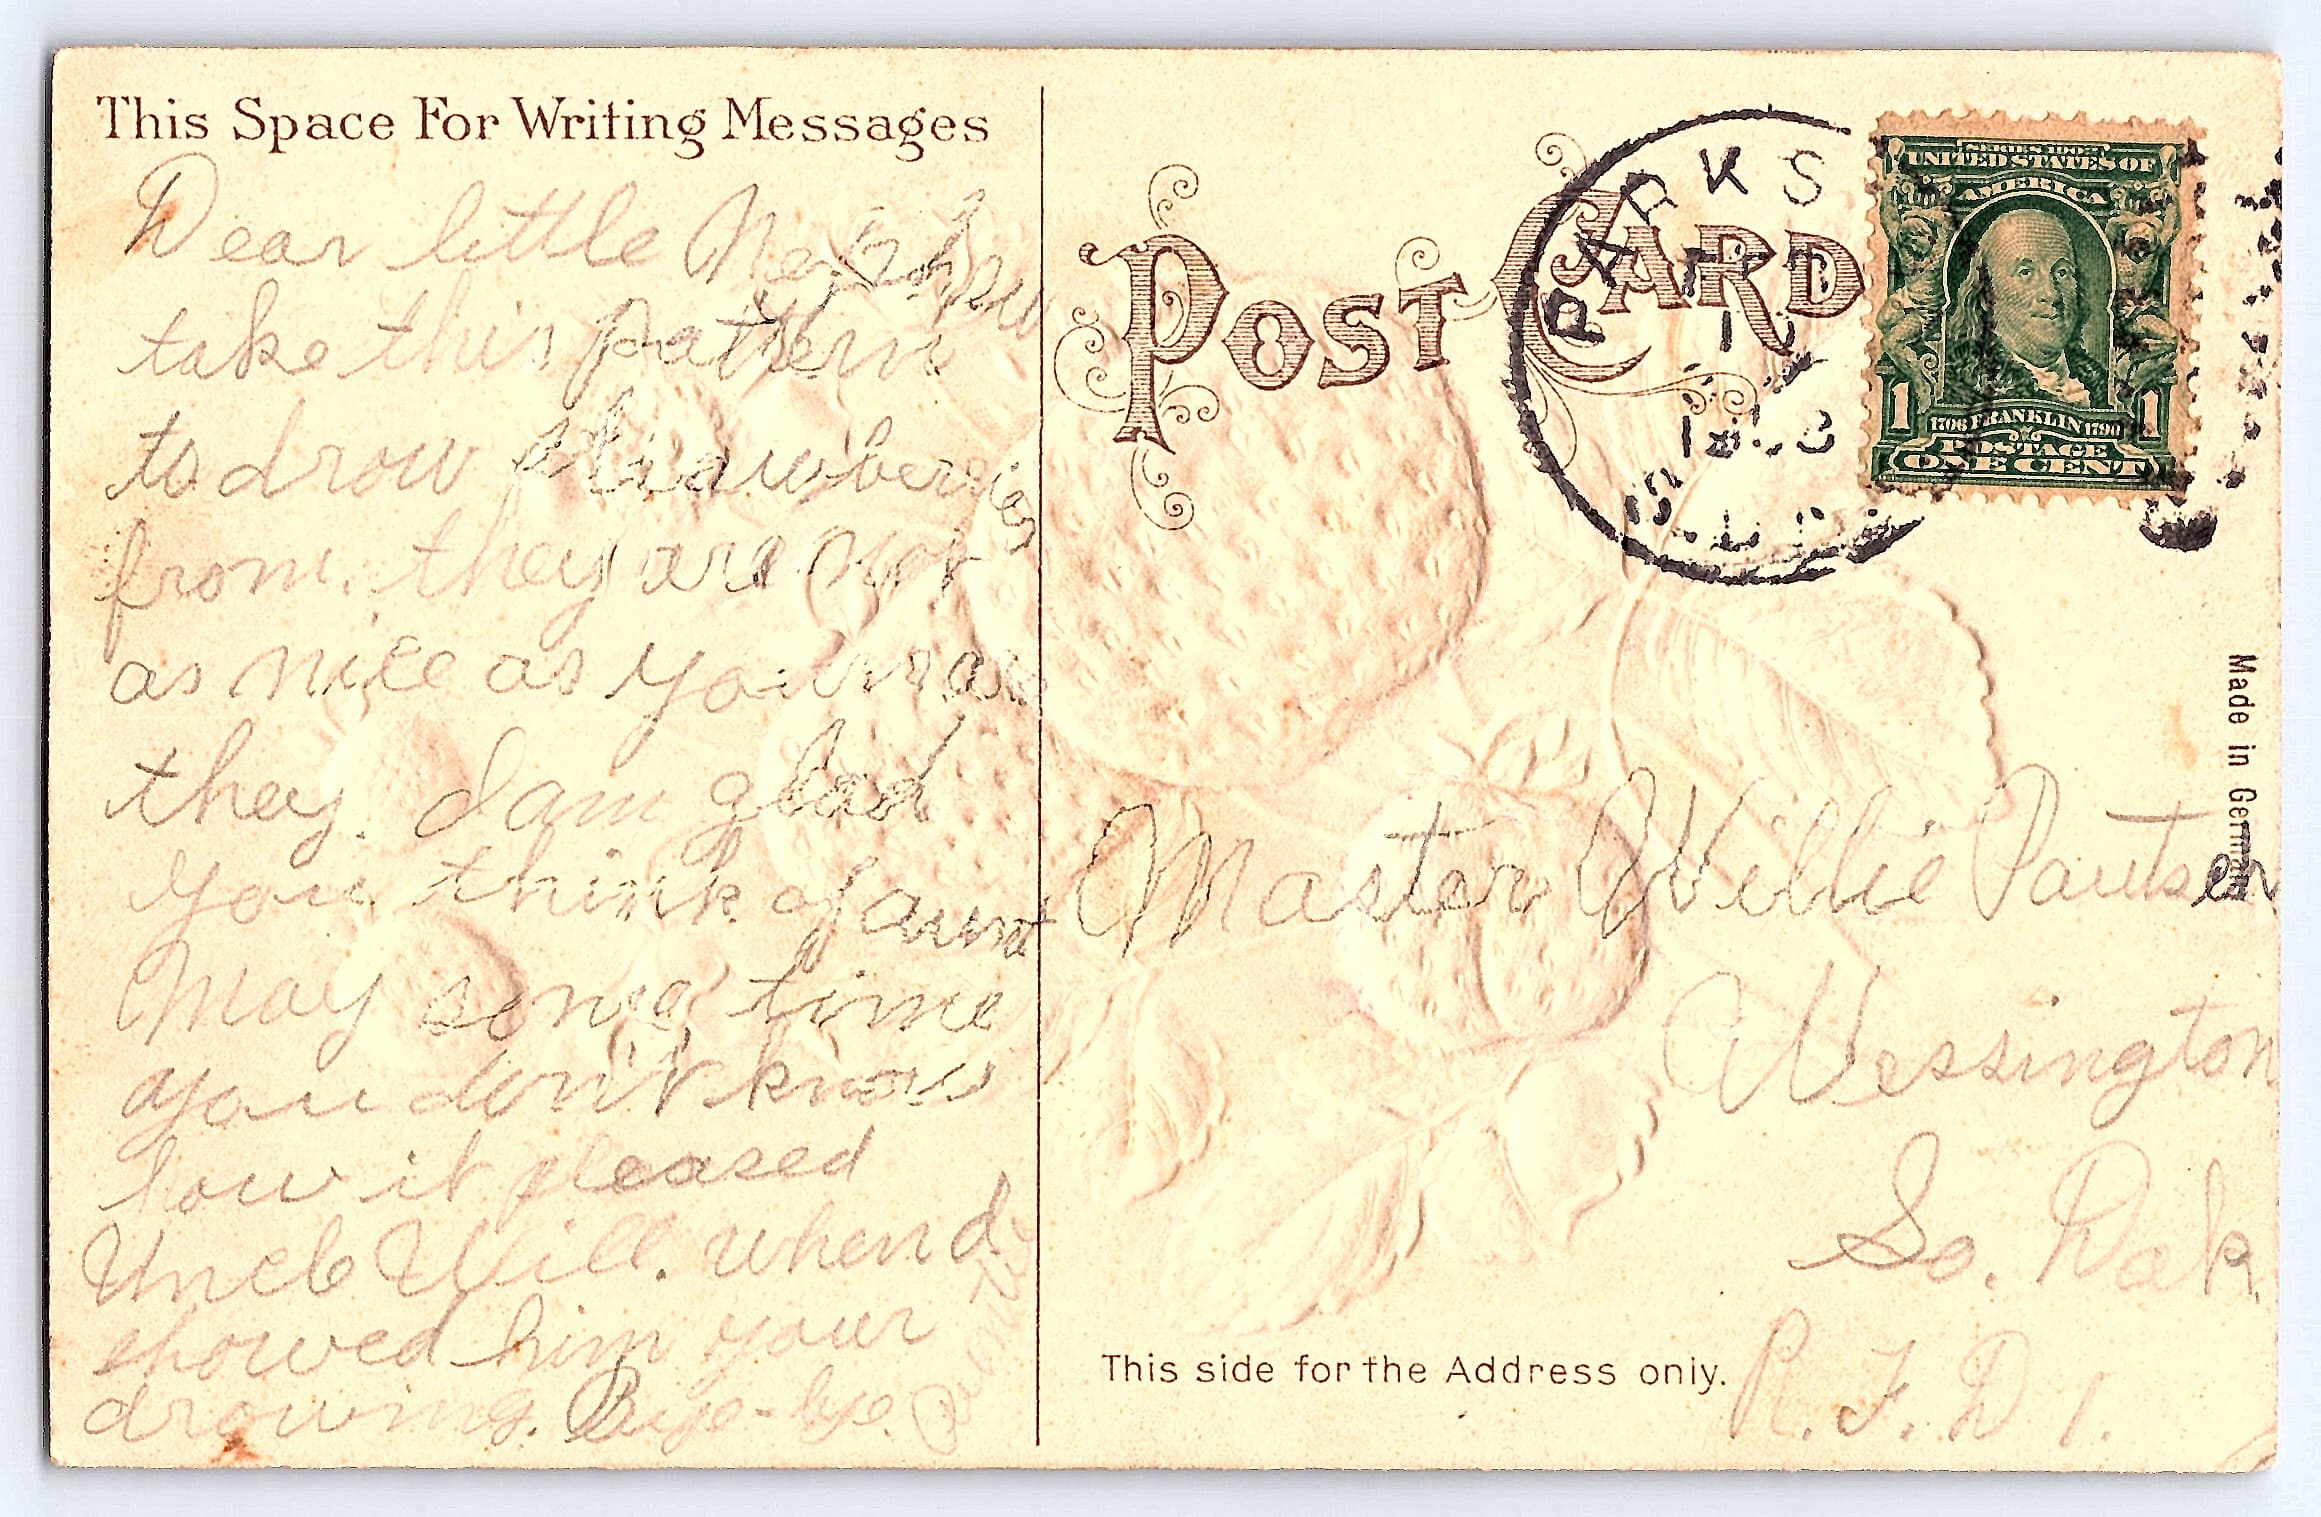 This Space For Writing Messages
Dear little Nephew
take this pattern
to drow strawberries
from. they are not
as nice as yours as
they. I am glad
you think of aunt
May some time
you don't know
how it pleased
Uncle Will. when I
showed him your
drowing. Bye-bye.
POST CARD
PARKS
SERIES 1902
UNITED STATES OF
AMERICA
1706 FRANKLIN 1790
1 1
POSTAGE
ONE CENT
Made in Germany
Master Willie Pautsch
Wessington
So. Dak.
R. F. D 1.
This side for the Address only.